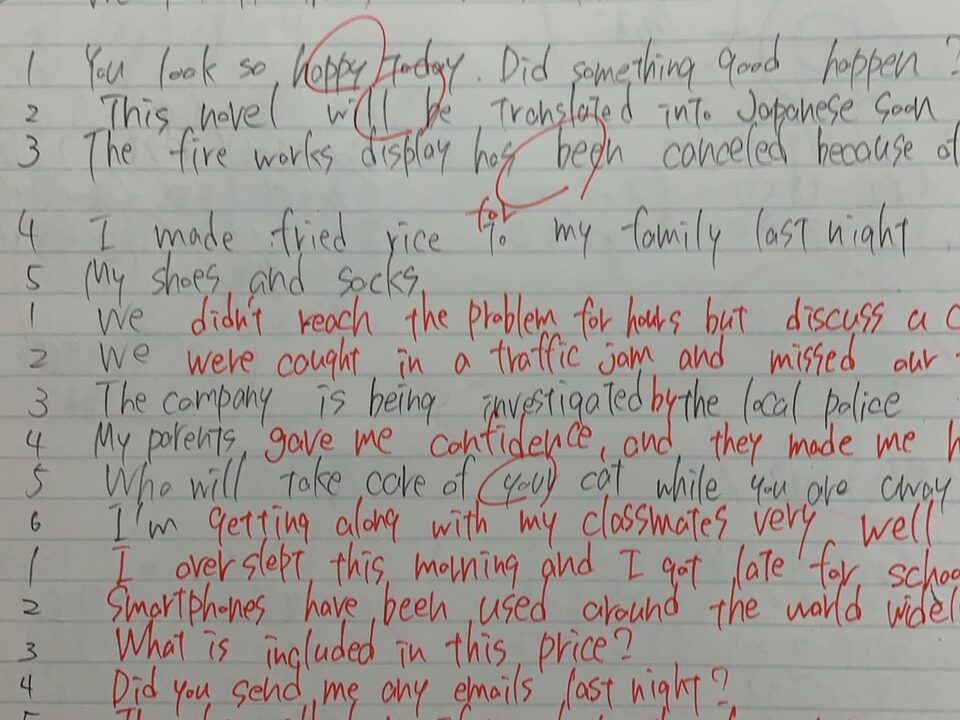 1 You look so happy today. Did something good happen?
2 This novel will be translated into Japanese soon
3 The fire works display has been canceled because of
for
4 I made fried rice to my family last night
5 My shoes and socks
1 We didn't reach the problem for hours but discuss a
2 We were caught in a traffic jam and missed our
3 The company is being investigated by the local police
4 My parents gave me confidence, and they made me
5 Who will take care of your cat while you are away
6 I'm getting along with my classmates very well
1 I overslept this morning and I got late for
2 Smartphones have been used around the world
3 What is included in this price?
4 Did you send me any emails last night?